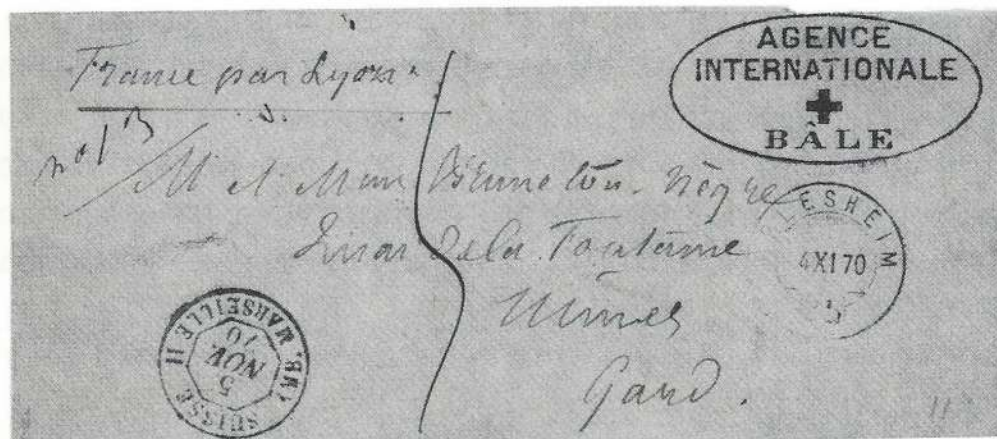 France par Lyon
AGENCE
INTERNATIONALE
BÂLE
no 13
M et Mme Bruneton-Nègre
Quai de la Fontaine
Nimes
Gard.
ESHEIM
4 XI 70
SUISSE AMB. MARSEILLE II
5
NOV
70
11